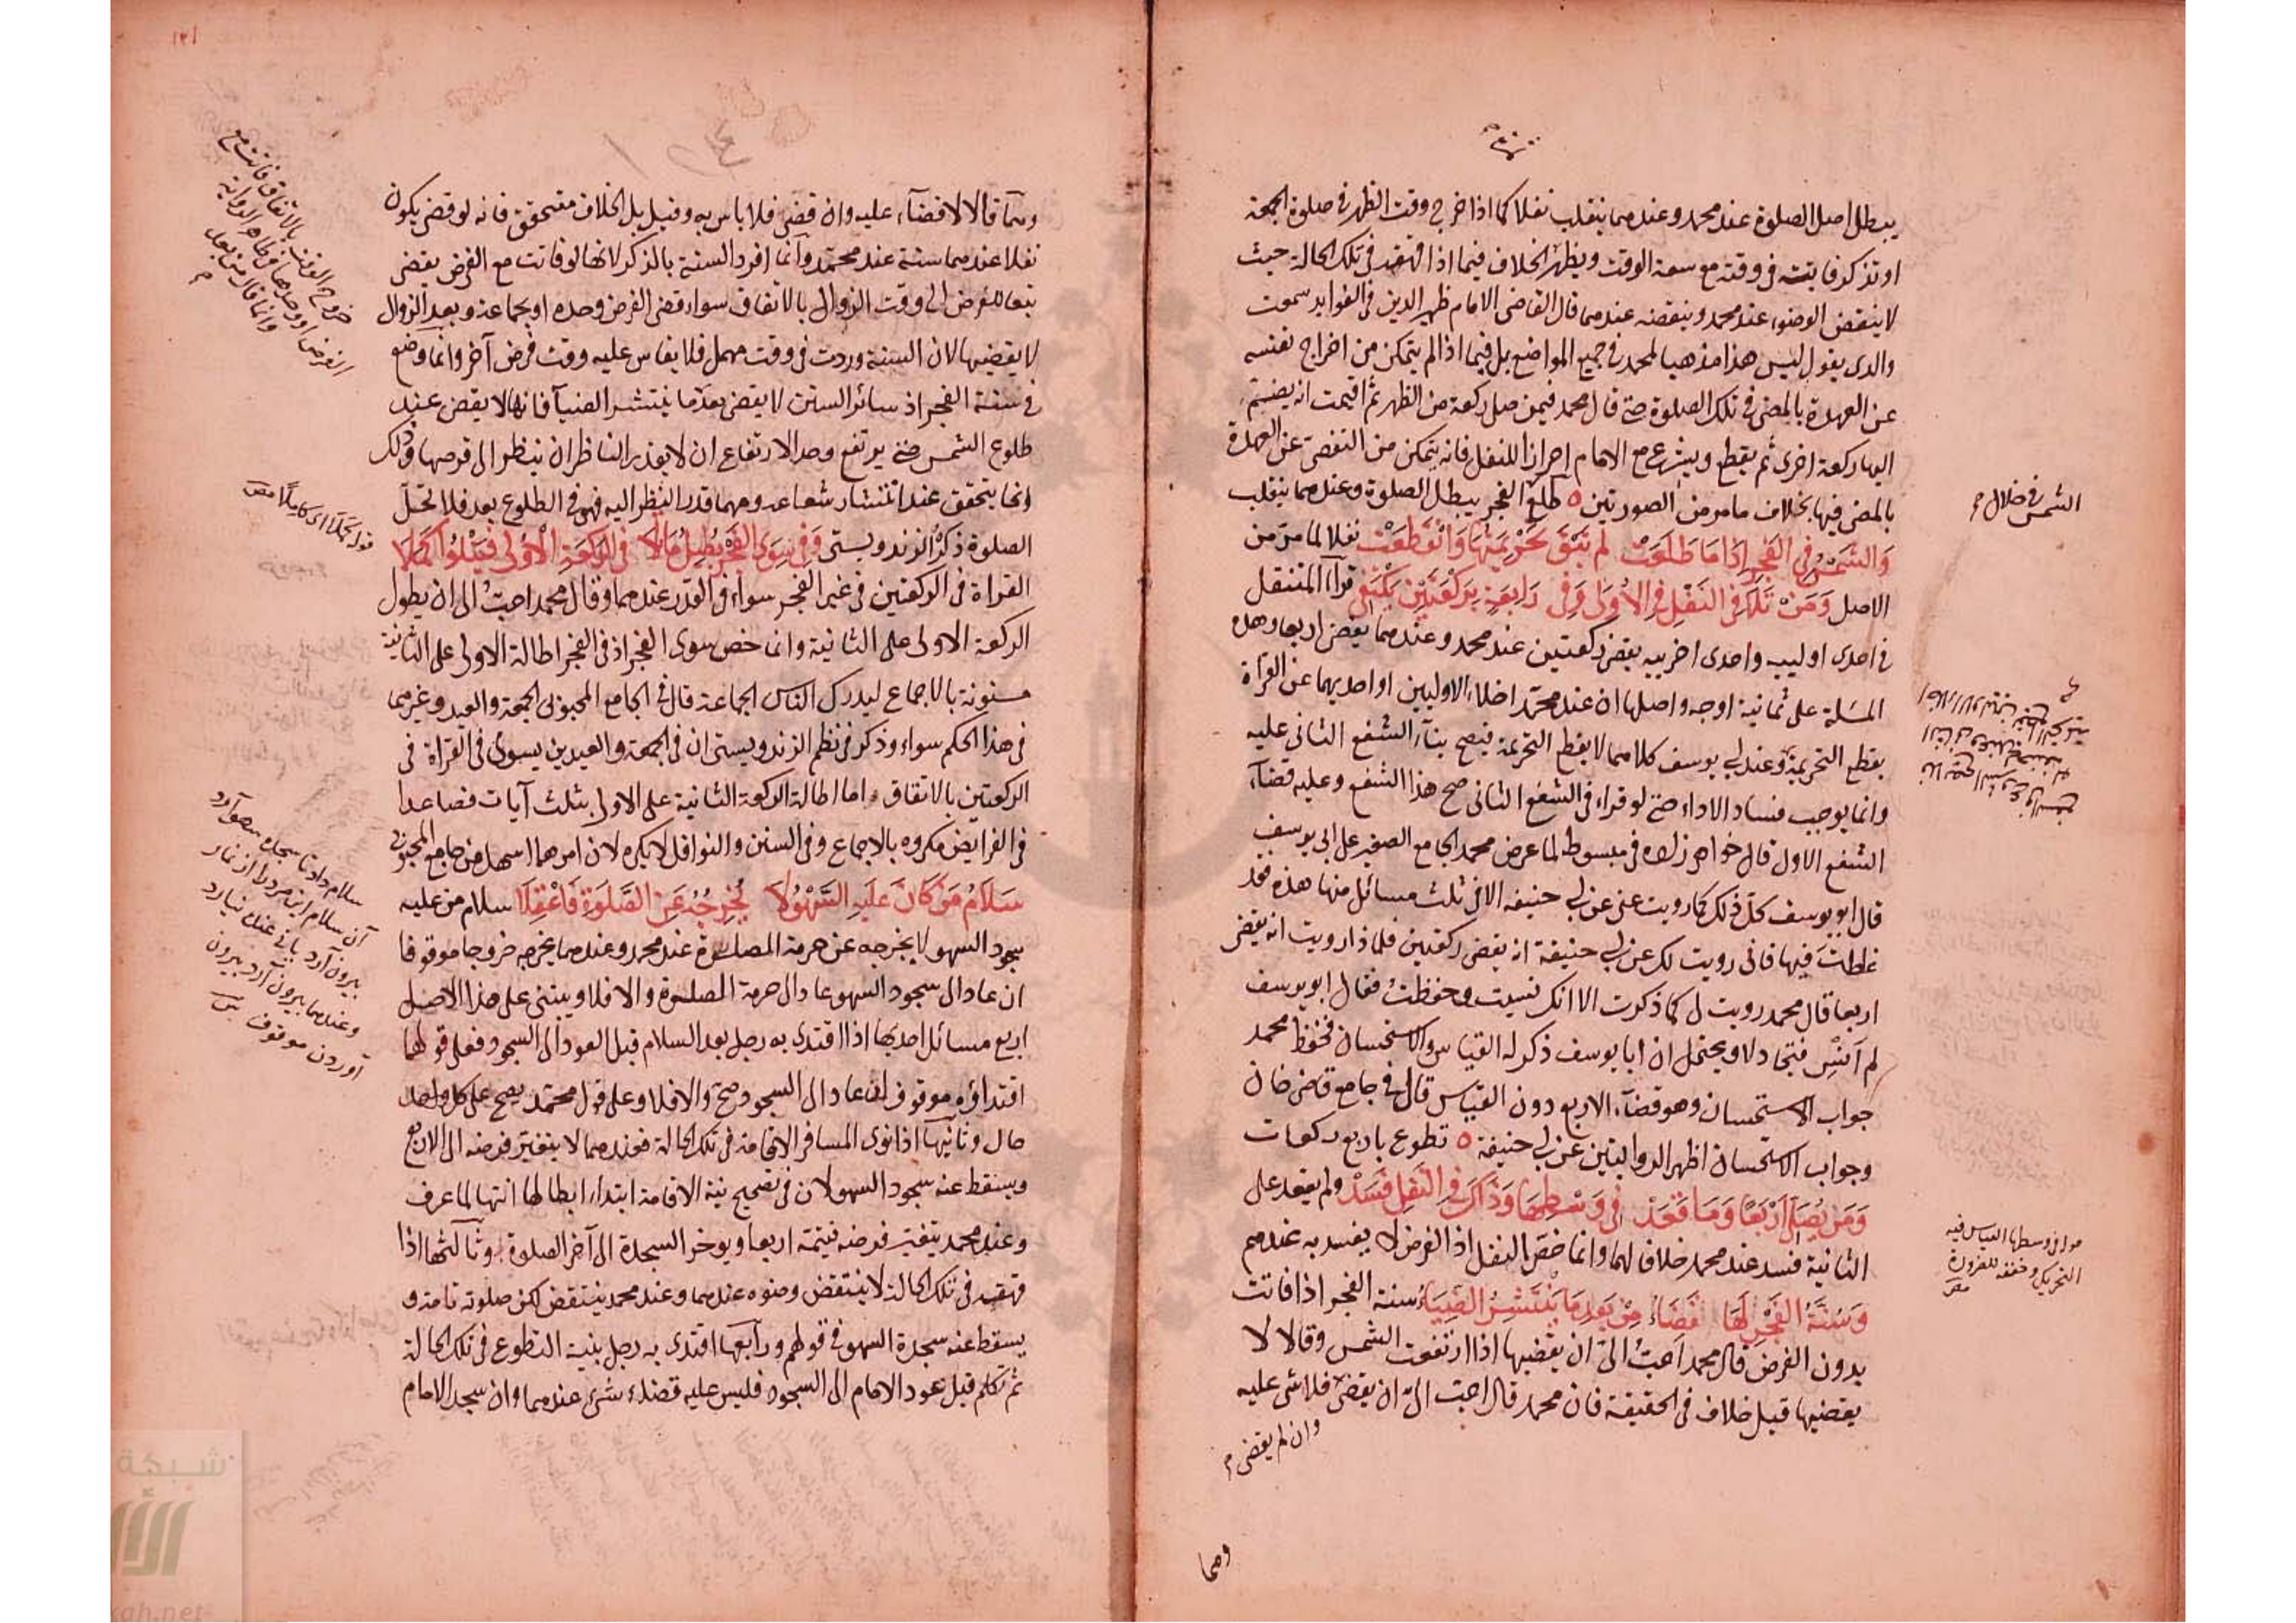 يبطل اصل الصلوة عند محمد وعندهما ينقلب نفلا كما اذا خرج وقت الظهر في صلوة الجمعة
او تذكر فايتة في وقته مع سعة الوقت ويظهر الخلاف فيما اذا قهقه في تلك الحالة حيث
لا ينتقض الوضوء عند محمد وينقضه عندهما قال القاضي الامام ظهير الدين في الفوايد سمعت
والدى يقول ليس هذا مذهبا لمحمد في جميع المواضع بل فيما اذا لم يتمكن من اخراج نفسه
عن العهدة بالمضي في تلك الصلوة حتى قال محمد فيمن صلى ركعة من الظهر ثم اقيمت انه يضم
اليها ركعة اخرى ثم يقطع ويشرع مع الامام احرازا للنفل فانه يتمكن من التفصي عن العهدة
بالمضي فيها بخلاف ما مر من الصورتين ه طلع الفجر يبطل الصلوة وعندهما ينقلب
وَالشَّمْسُ فِي الفَجْرِ اِذَا مَا طَلَعَتْ لم تَبْقَ تَحْرِيمَتُهَا وَانْقَطَعَتْ نفلا لما مر من
الاصل وَمَنْ تَلَا فِي النَّفْلِ فِي الأُولَى وَفِي رَابِعَةٍ بِرَكْعَتَيْنِ يَكْتَفِي قراءة المتنفل
في احدى اولييه واحدى اخرييه يقضي ركعتين عند محمد وعندهما يقضي اربعا وهذه
المسئلة على ثمانية اوجه واصلها ان عند محمد اخلاء الاوليين او احديهما عن القراة
يقطع التحريمة وعند ابي يوسف كلاهما لا يقطع التحريمة فيصح بناء الشفع الثاني عليه
وانما يوجب فساد الاداء حتى لو قراء في الشفع الثاني صح هذا الشفع وعليه قضاء
الشفع الاول قال خواهر زاده في مبسوطه لما عرض محمد الجامع الصغير على ابي يوسف
قال ابو يوسف كل ذلك كما رويت عني عن ابي حنيفة الا في ثلث مسائل منها هذه فقد
غلطت فيها فاني رويت لك عن ابي حنيفة انه يقضي ركعتين فلماذا رويت انه يقضي
اربعا قال محمد رويت لي كما ذكرت الا انك نسيت وحفظت فقال ابو يوسف
لم اَنْسَ فتجادلا ويحتمل ان ابا يوسف ذكر له القياس والاستحسان فحفظ محمد
جواب الاستحسان وهو قضاء الاربع دون القياس قال في جامع قاضي خان
وجواب الاستحسان اظهر الروايتين عن ابي حنيفة ه تطوع باربع ركعات
وَمَن يُصَلِّ اَرْبَعًا وَمَا قَعَدْ في وَسْطِهَا وَذَاكَ فِي النَّفْلِ فَسَدْ ولم يقعد على
الثانية فسد عند محمد خلافا لهما وانما خص النفل اذ الفرض لا يفسد به عندهم
وَسُنَّةُ الفَجْرِ لَهَا قَضَاءُ مِنْ بَعْدِ مَا يَنْتَشِرُ الضِّيَاءُ سنة الفجر اذا فاتت
بدون الفرض قال محمد اَحبُّ الىّ ان يقضيها اذا ارتفعت الشمس وقالا لا
يقضيها قيل خلاف في الحقيقة فان محمد قال احب الىّ ان يقضى فلا شئ عليه
وان لم يقضى
وهما
الشمس في خلال
وهما قالا لا قضاء عليه وان قضى فلا باس به وقيل بل الخلاف متحقق فانه لو قضى يكون
نفلا عندهما سنة عند محمد وانما افرد السنة بالذكر لانها لو فاتت مع الفرض يقضي
تبعا للفرض الى وقت الزوال بالاتفاق سواء قضى الفرض وحده او بجماعة وبعد الزوال
لا يقضيها لان السنة وردت في وقت مهمل فلا يقاس عليه وقت فرض آخر وانما وضع
في سنة الفجر اذ سائر السنن لا يقضى بعد ما ينتشر الضياء فانها لا يقضى عند
طلوع الشمس حتى يرتفع وحد الارتفاع ان لا يقدر الناظر ان ينظر الى قرصها وذلك
انما يتحقق عند انتشار شعاعه ومهما قدر النظر اليه فهو في الطلوع بعد فلا تحل
الصلوة ذكره الزندويستى وَفِي سِوَى الفَجْرِ يُطِيلُ مَا لَا في الرَّكْعَةِ الْأُولَى فَيَتْلُوا كَمَلَا
القراة في الركعتين في غير الفجر سواء في القدر عندهما وقال محمد احبُّ الى ان يطول
الركعة الاولى على الثانية وانما خص سوى الفجر اذ في الفجر اطالة الاولى على الثانية
مسنونة بالاجماع ليدرك الناس الجماعة قال في الجامع المحبوبى الجمعة والعيد وغيرهما
في هذا الحكم سواء وذكر في نظم الزندويستى ان في الجمعة والعيدين يسوى في القراة في
الركعتين بالاتفاق واما اطالة الركعة الثانية على الاولى بثلث آيات فصاعدا
في الفرايض مكروه بالاجماع وفي السنن والنوافل لا يكره لان امرهما اسهل من جامع المحبوبى
سَلَامُ مَنْ كَانَ عَلَيهِ السَّهْوُ لَا يُخْرِجُهُ عَنِ الصَّلَوةِ فَاعْقِلَا سلام من عليه
سجود السهو لا يخرجه عن حرمة الصلوة عند محمد وعندهما يخرجه خروجا موقوفا
ان عاد الى سجود السهو عاد الى حرمة الصلوة والا فلا ويبتنى على هذا الاصل
اربع مسائل احديها اذا اقتدى به رجل بعد السلام قبل العود الى السجود فعلى قولهما
اقتداؤه موقوف ان عاد الى السجود صح والا فلا وعلى قول محمد يصح على كل واحد
حال وثانيها اذا نوى المسافر الاقامة في تلك الحالة فعندهما لا يتغير فرضه الى الاربع
ويسقط عنه سجود السهو لان في تصحيح نية الاقامة ابتداء ابطالها انتها لما عرف
وعند محمد يتغير فرضه فيتمه اربعا ويوخر السجدة الى آخر الصلوة وثالثها اذا
قهقه في تلك الحالة لا ينتقض وضوه عندهما وعند محمد ينتقض لكن صلوته تامة و
يسقط عنه سجدة السهو في قولهم ورابعها اقتدى به رجل بنية التطوع في تلك الحالة
ثم تكلم قبل عود الامام الى السجود فليس عليه قضاء شئ عندهما وان سجد الامام
خروج الوقت بالاتفاق فاتت مع
الفرض او وحدها في ظاهر الرواية
وانما قال من بعد
قوله كملا اى كاملا مص
سلام داد تا سجده سهو آرد
آن سلام اين مرد را از نماز
بيرون آرد يا نى عنده نيارد
وعندهما بيرون آرد بيرون
آوردن موقوف
شبكة